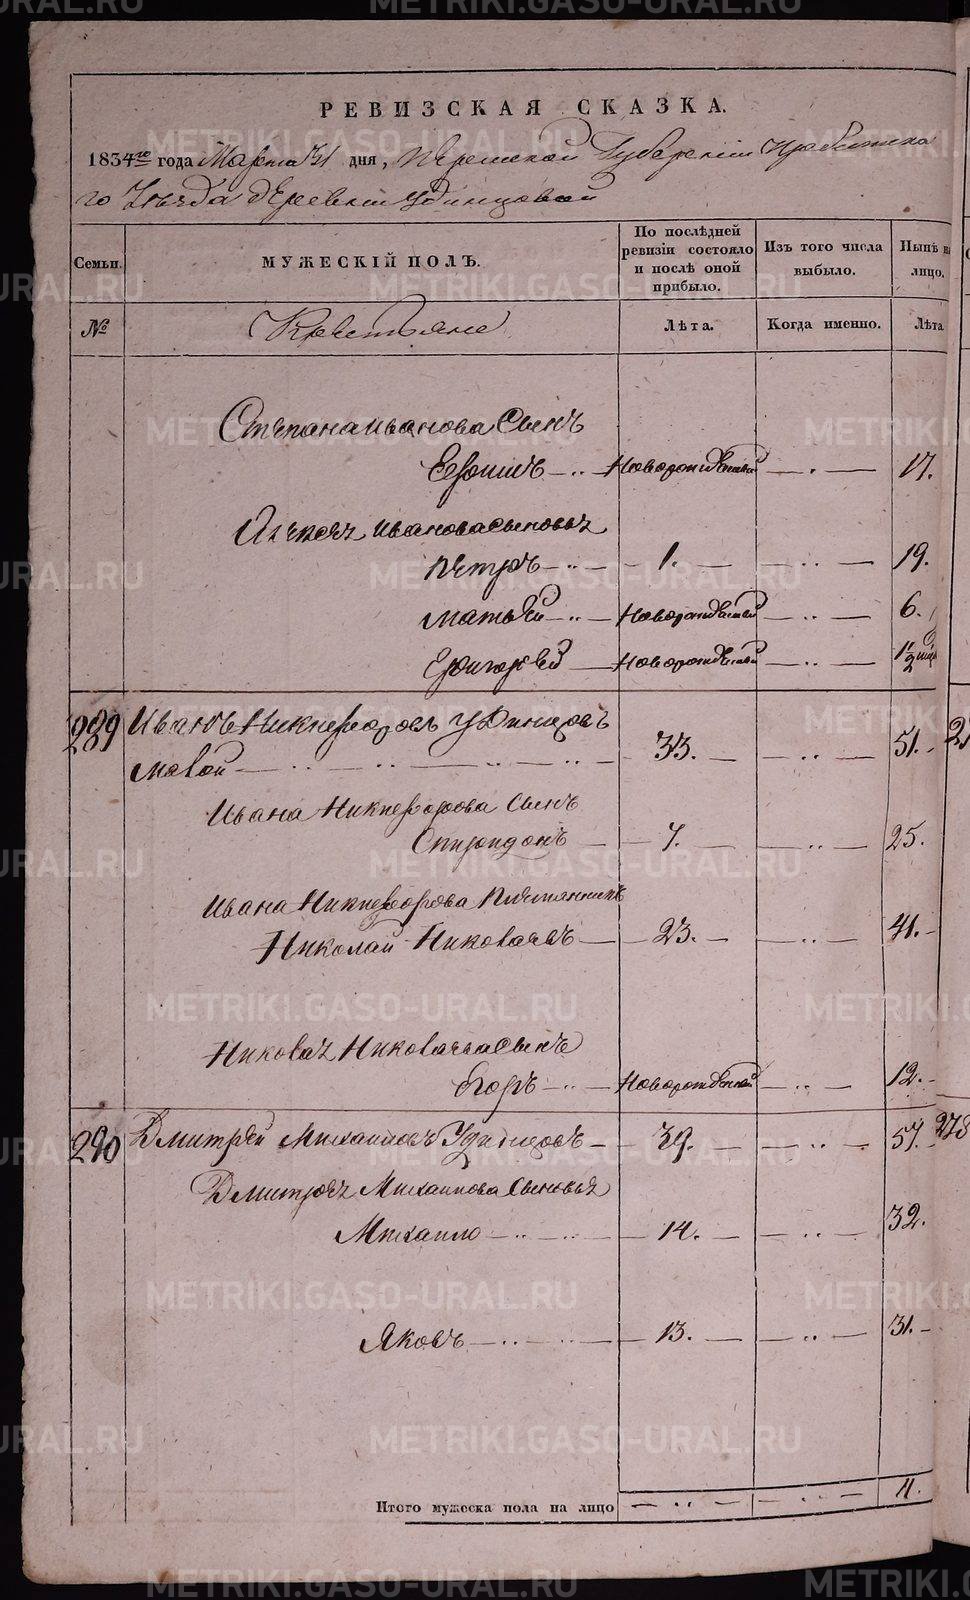 РЕВИЗСКАЯ СКАЗКА.
1834го года Марта 31 дня, Пермской Губернии Ирбитска
го Уезда деревни Удинцовой
Семьи.
МУЖЕСКІЙ ПОЛЪ.
По послѣдней ревизіи состояло и послѣ оной прибыло.
Изъ того числа выбыло.
Нынѣ на лицо.
№
Крестьяне
Лѣта.
Когда именно.
Лѣта
Степана Иванова Сынъ
Ефимъ Новорожденный 17.
Алексея Иванова сыновья
Петръ 1. 19.
Матвей Новорожденный 6.
Григорей Новорожденный 1/2
289 Иванъ Никифоровъ Удинцовъ 33. 51.
Ивана Никифорова Сынъ
Спиридонъ 7. 25.
Ивана Никифорова Племянникъ
Николай 23. 41.
Сынъ
Егоръ Новорожденный 12.
290 Дмитрей Михаиловъ Удинцовъ 39. 57.
Дмитрея Михаилова Сыновья
Михаило 14. 32.
Яковъ 13. 31.
Итого мужеска пола на лицо 11.
METRIKI.GASO-URAL.RU